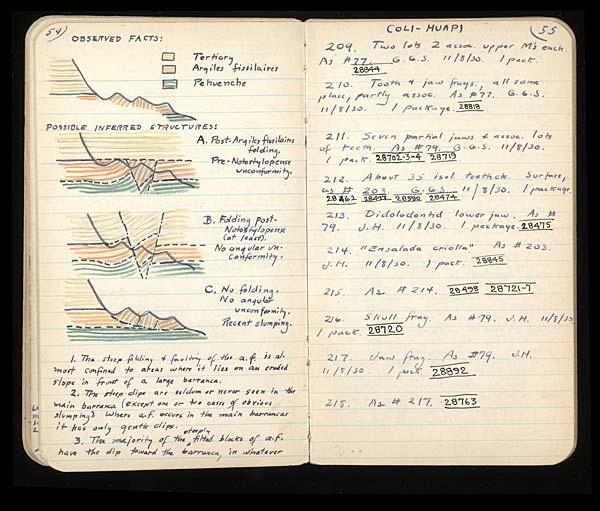 54)
OBSERVED FACTS:
Tertiary
Argiles fissilaires
Pehuenche
POSSIBLE INFERRED STRUCTURES:
A. Post-Argiles fissilaires
folding.
Pre-Notostylopense
unconformity.
B. Folding post-
Notostylopense
(at least).
No angular un-
conformity.
C. No folding.
No angular
unconformity.
Recent slumping.
1. The steep folding & faulting of the a.f. is al-
most confined to areas where it lies on an eroded
slope in front of a large barranca.
2. The steep dips are seldom or never seen in the
main barranca (except one or two cases of obvious
slumping). Where a.f. occurs in the main barrancas
it has only gentle dips.
3. The majority of the steeply tilted blocks of a.f.
have the dip toward the barranca, in whatever
COLI-HUAPI
55
209. Two lots 2 assoc. upper M's each.
As #77. G.G.S. 11/8/30. 1 pack.
28844
210. Tooth & jaw frags., all same
place, partly assoc. As #77. G.G.S.
11/8/30. 1 package. 28818
211. Seven partial jaws & assoc. lots
of teeth. As #79. G.G.S. 11/8/30.
1 pack. 28702-3-4 28719
212. About 35 isol teeth etc. Surface,
as # 203. G.G.S. 11/8/30. 1 package.
28462 28457 28590 28474
213. Didolodontid lower jaw. As #
79. J.H. 11/8/30. 1 package. 28475
214. "Ensalada criolla" As # 203.
J.H. 11/8/30. 1 pack. 28845
215. As # 214. 28498 28721-7
216. Skull frag. As #79. J.H. 11/8/30
1 pack. 28720
217. Jaw frag. As #79. J.H.
11/8/30. 1 pack 28892
218. As # 217. 28763